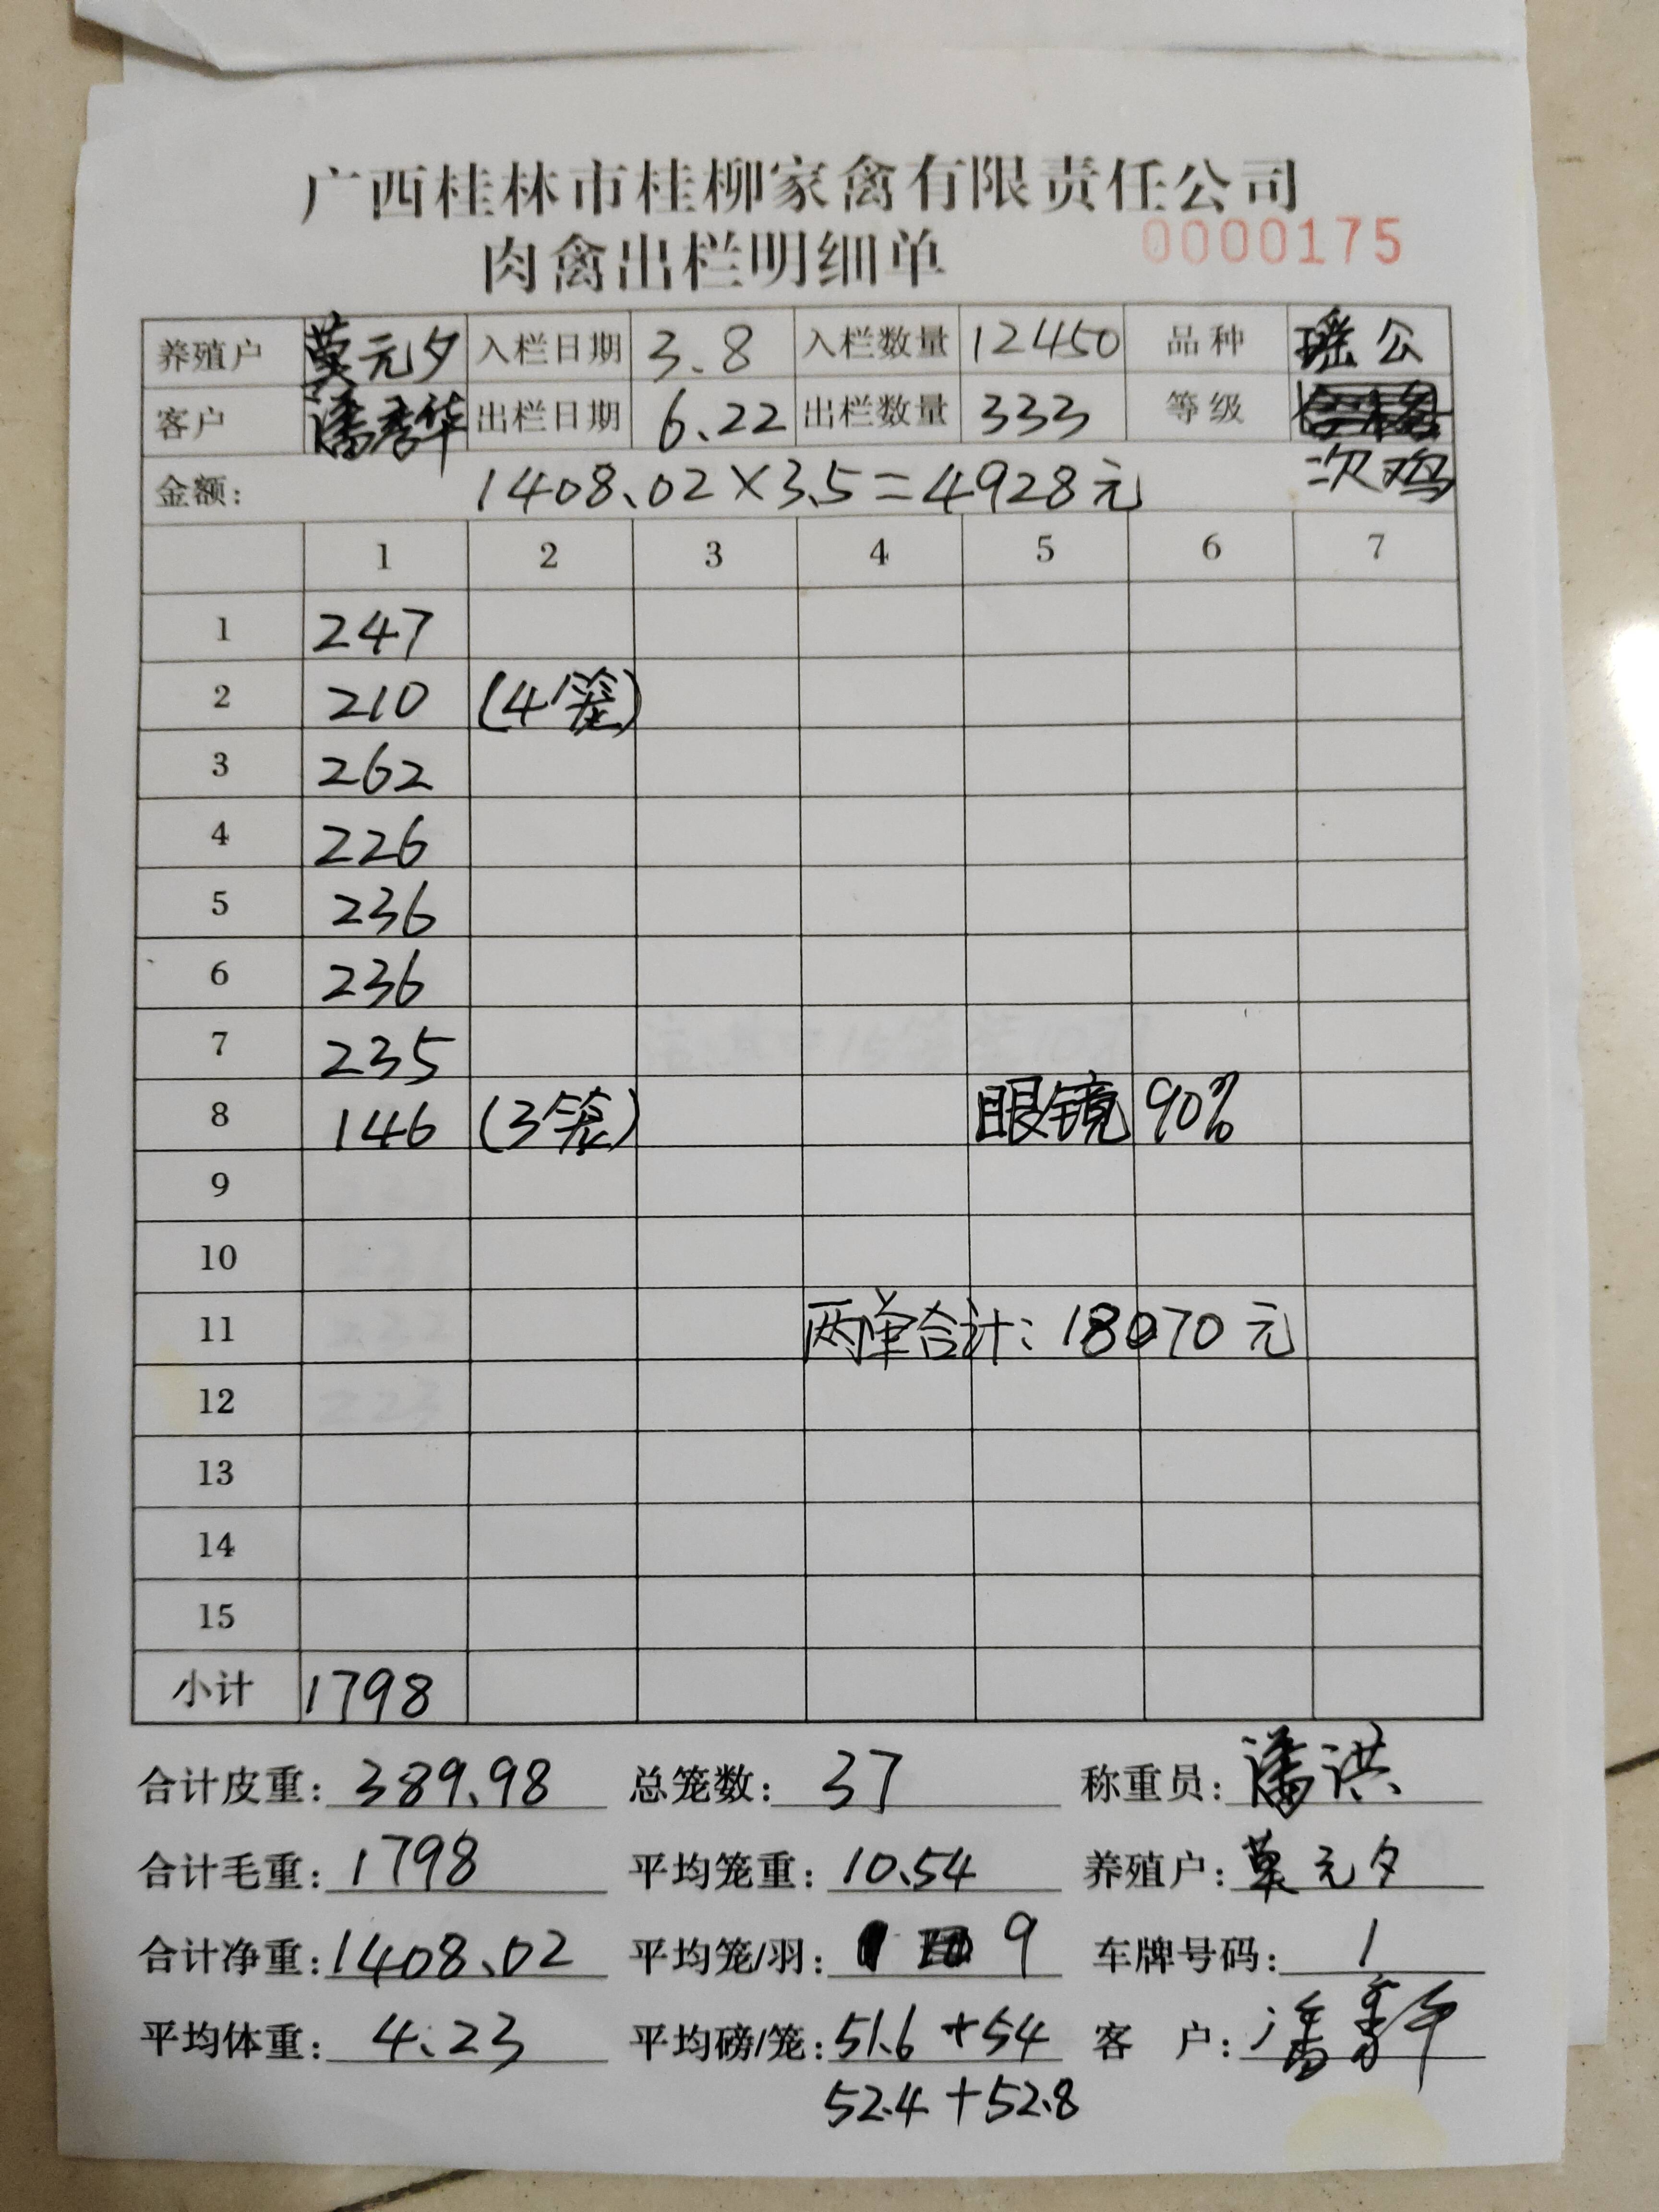 广西桂林市桂柳家禽有限责任公司
肉禽出栏明细单 0000175
养殖户 莫元夕 入栏日期 3.8 入栏数量 12450 品种 瑶公
客户 潘秀华 出栏日期 6.22 出栏数量 333 等级
金额: 1408.02×3.5=4928元 次鸡
1 2 3 4 5 6 7
1 247
2 210 (4笼)
3 262
4 226
5 236
6 236
7 235
8 146 (3笼) 眼镜 90%
9
10
11 两单合计: 18070元
12
13
14
15
小计 1798
合计皮重: 389.98 总笼数: 37 称重员: 潘洪
合计毛重: 1798 平均笼重: 10.54 养殖户: 莫元夕
合计净重: 1408.02 平均笼/羽: 9 车牌号码: 1
平均体重: 4.23 平均磅/笼: 51.6+54 客户:
52.4+52.8